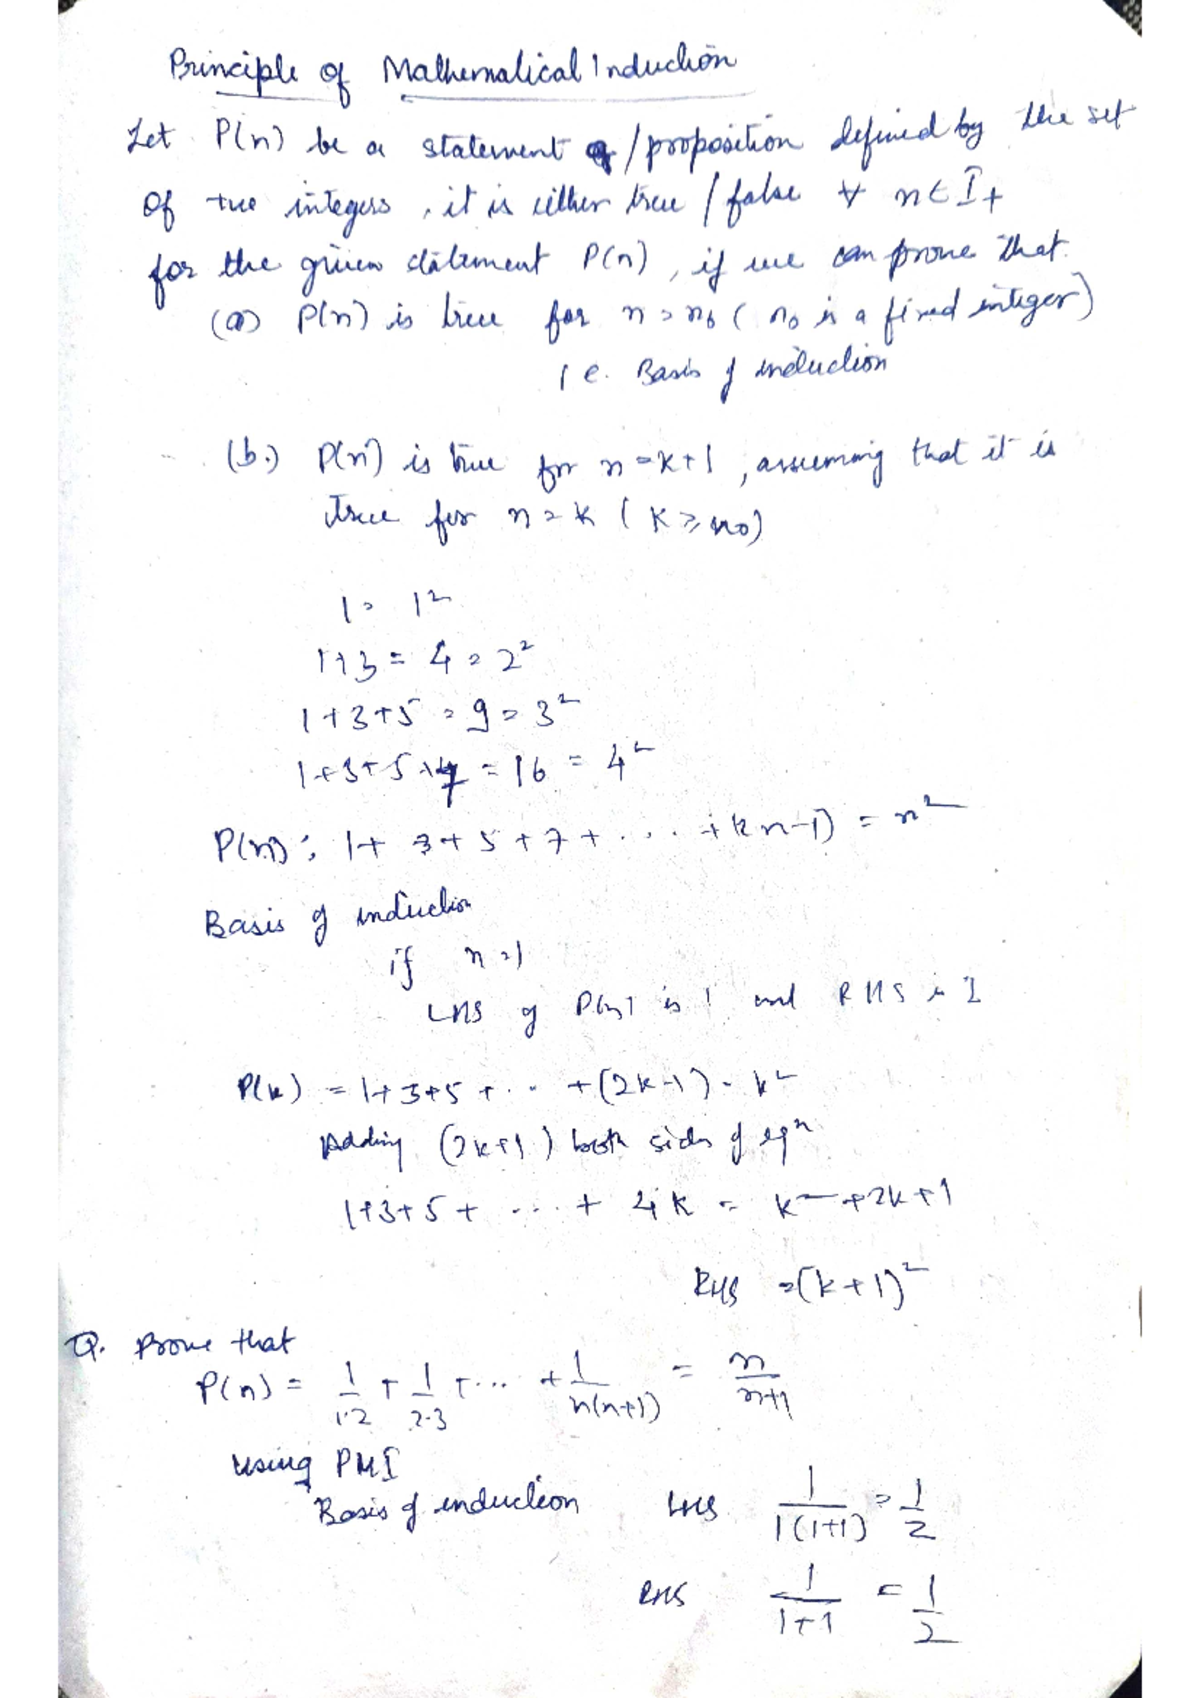 Principle of Mathematical Induction
Let P(n) be a statement /proposition defined by the set
of +ve integers, it is either true / false ∀ n ∈ I+
for the given statement P(n), if we can prove that
(a) P(n) is true for n = n0 ( n0 is a fixed integer)
i.e. Basis of induction
(b.) P(n) is true for n = k+1, assuming that it is
true for n = k ( k ≥ n0)
1 = 1²
1+3 = 4 = 2²
1+3+5 = 9 = 3²
1+3+5+7 = 16 = 4²
P(n) : 1+ 3+ 5 + 7 + ... + (2n-1) = n²
Basis of induction
if n = 1
LHS of P(n) is 1 and RHS is 1
P(k) = 1+3+5 + .. + (2k-1) = k²
Adding (2k+1) both sides of eqn
1+3+5 + ... + 4k = k² + 2k + 1
RHS = (k+1)²
Q. Prove that
P(n) = 1/1·2 + 1/2·3 + ... + 1/n(n+1) = n/n+1
using PMI
Basis of induction LHS 1/1(1+1) = 1/2
RHS 1/1+1 = 1/2